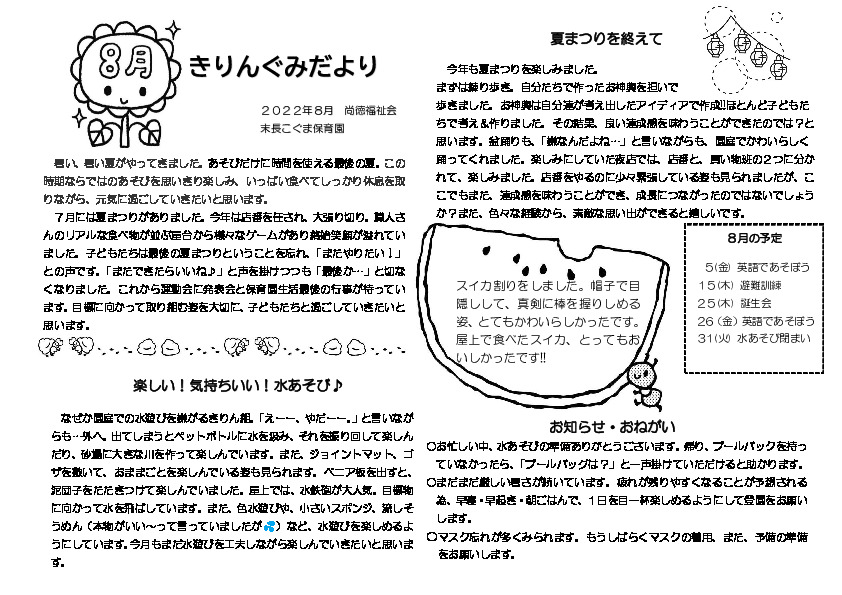 8月
きりんぐみだより
２０２２年８月　尚徳福祉会
末長こぐま保育園
暑い、暑い夏がやってきました。あそびだけに時間を使える最後の夏。この
時期ならではのあそびを思いきり楽しみ、いっぱい食べてしっかり休息を取
りながら、元気に過ごしていきたいと思います。
７月には夏まつりがありました。今年は店番を任され、大張り切り。職人さ
んのリアルな食べ物が並ぶ屋台から様々なゲームがあり終始笑顔が溢れてい
ました。子どもたちは最後の夏まつりということを忘れ、「またやりたい！」
との声です。「またできたらいいね♪」と声を掛けつつも「最後か…」と切な
くなりました。これから運動会に発表会と保育園生活最後の行事が待ってい
ます。目標に向かって取り組む姿を大切に、子どもたちと過ごしていきたいと
思います。
楽しい！気持ちいい！水あそび♪
なぜか園庭での水遊びを嫌がるきりん組。「えーー、やだーー。」と言いなが
らも…外へ。出てしまうとペットボトルに水を汲み、それを振り回して楽しん
だり、砂場に大きな川を作って楽しんでいます。また、ジョイントマット、ゴ
ザを敷いて、おままごとを楽しんでいる姿も見られます。ベニア板を出すと、
泥団子をたたきつけて楽しんでいました。屋上では、水鉄砲が大人気。目標物
に向かって水を飛ばしています。また、色水遊びや、小さいスポンジ、流しそ
うめん（本物がいい～って言っていましたが💦）など、水遊びを楽しめるよ
うにしています。今月もまだ水遊びを工夫しながら楽しんでいきたいと思いま
す。
夏まつりを終えて
今年も夏まつりを楽しみました。
まずは練り歩き。自分たちで作ったお神輿を担いで
歩きました。お神輿は自分達が考え出したアイディアで作成!!ほとんど子どもた
ちで考え&作りました。その結果、良い達成感を味わうことができたのでは？と
思います。盆踊りも、「嫌なんだよね…」と言いながらも、園庭でかわいらしく
踊ってくれました。楽しみにしていた夜店では、店番と、買い物班の２つに分か
れて、楽しみました。店番をやるのに少々緊張している姿も見られましたが、こ
こでもまた、達成感を味わうことができ、成長につながったのではないでしょう
か？また、色々な経験から、素敵な思い出ができると嬉しいです。
スイカ割りをしました。帽子で目
隠しして、真剣に棒を握りしめる
姿、とてもかわいらしかったです。
屋上で食べたスイカ、とってもお
いしかったです!!
８月の予定
5(金) 英語であそぼう
15(木) 避難訓練
25(木) 誕生会
26 (金) 英語であそぼう
31(火) 水あそび閉まい
お知らせ・おねがい
〇お忙しい中、水あそびの準備ありがとうございます。帰り、プールバックを持っ
ていなかったら、「プールバッグは？」と一声掛けていただけると助かります。
〇まだまだ厳しい暑さが続いています。疲れが残りやすくなることが予想される
為、早寝・早起き・朝ごはんで、１日を目一杯楽しめるようにして登園をお願い
します。
〇マスク忘れが多くみられます。もうしばらくマスクの着用、また、予備の準備
をお願いします。